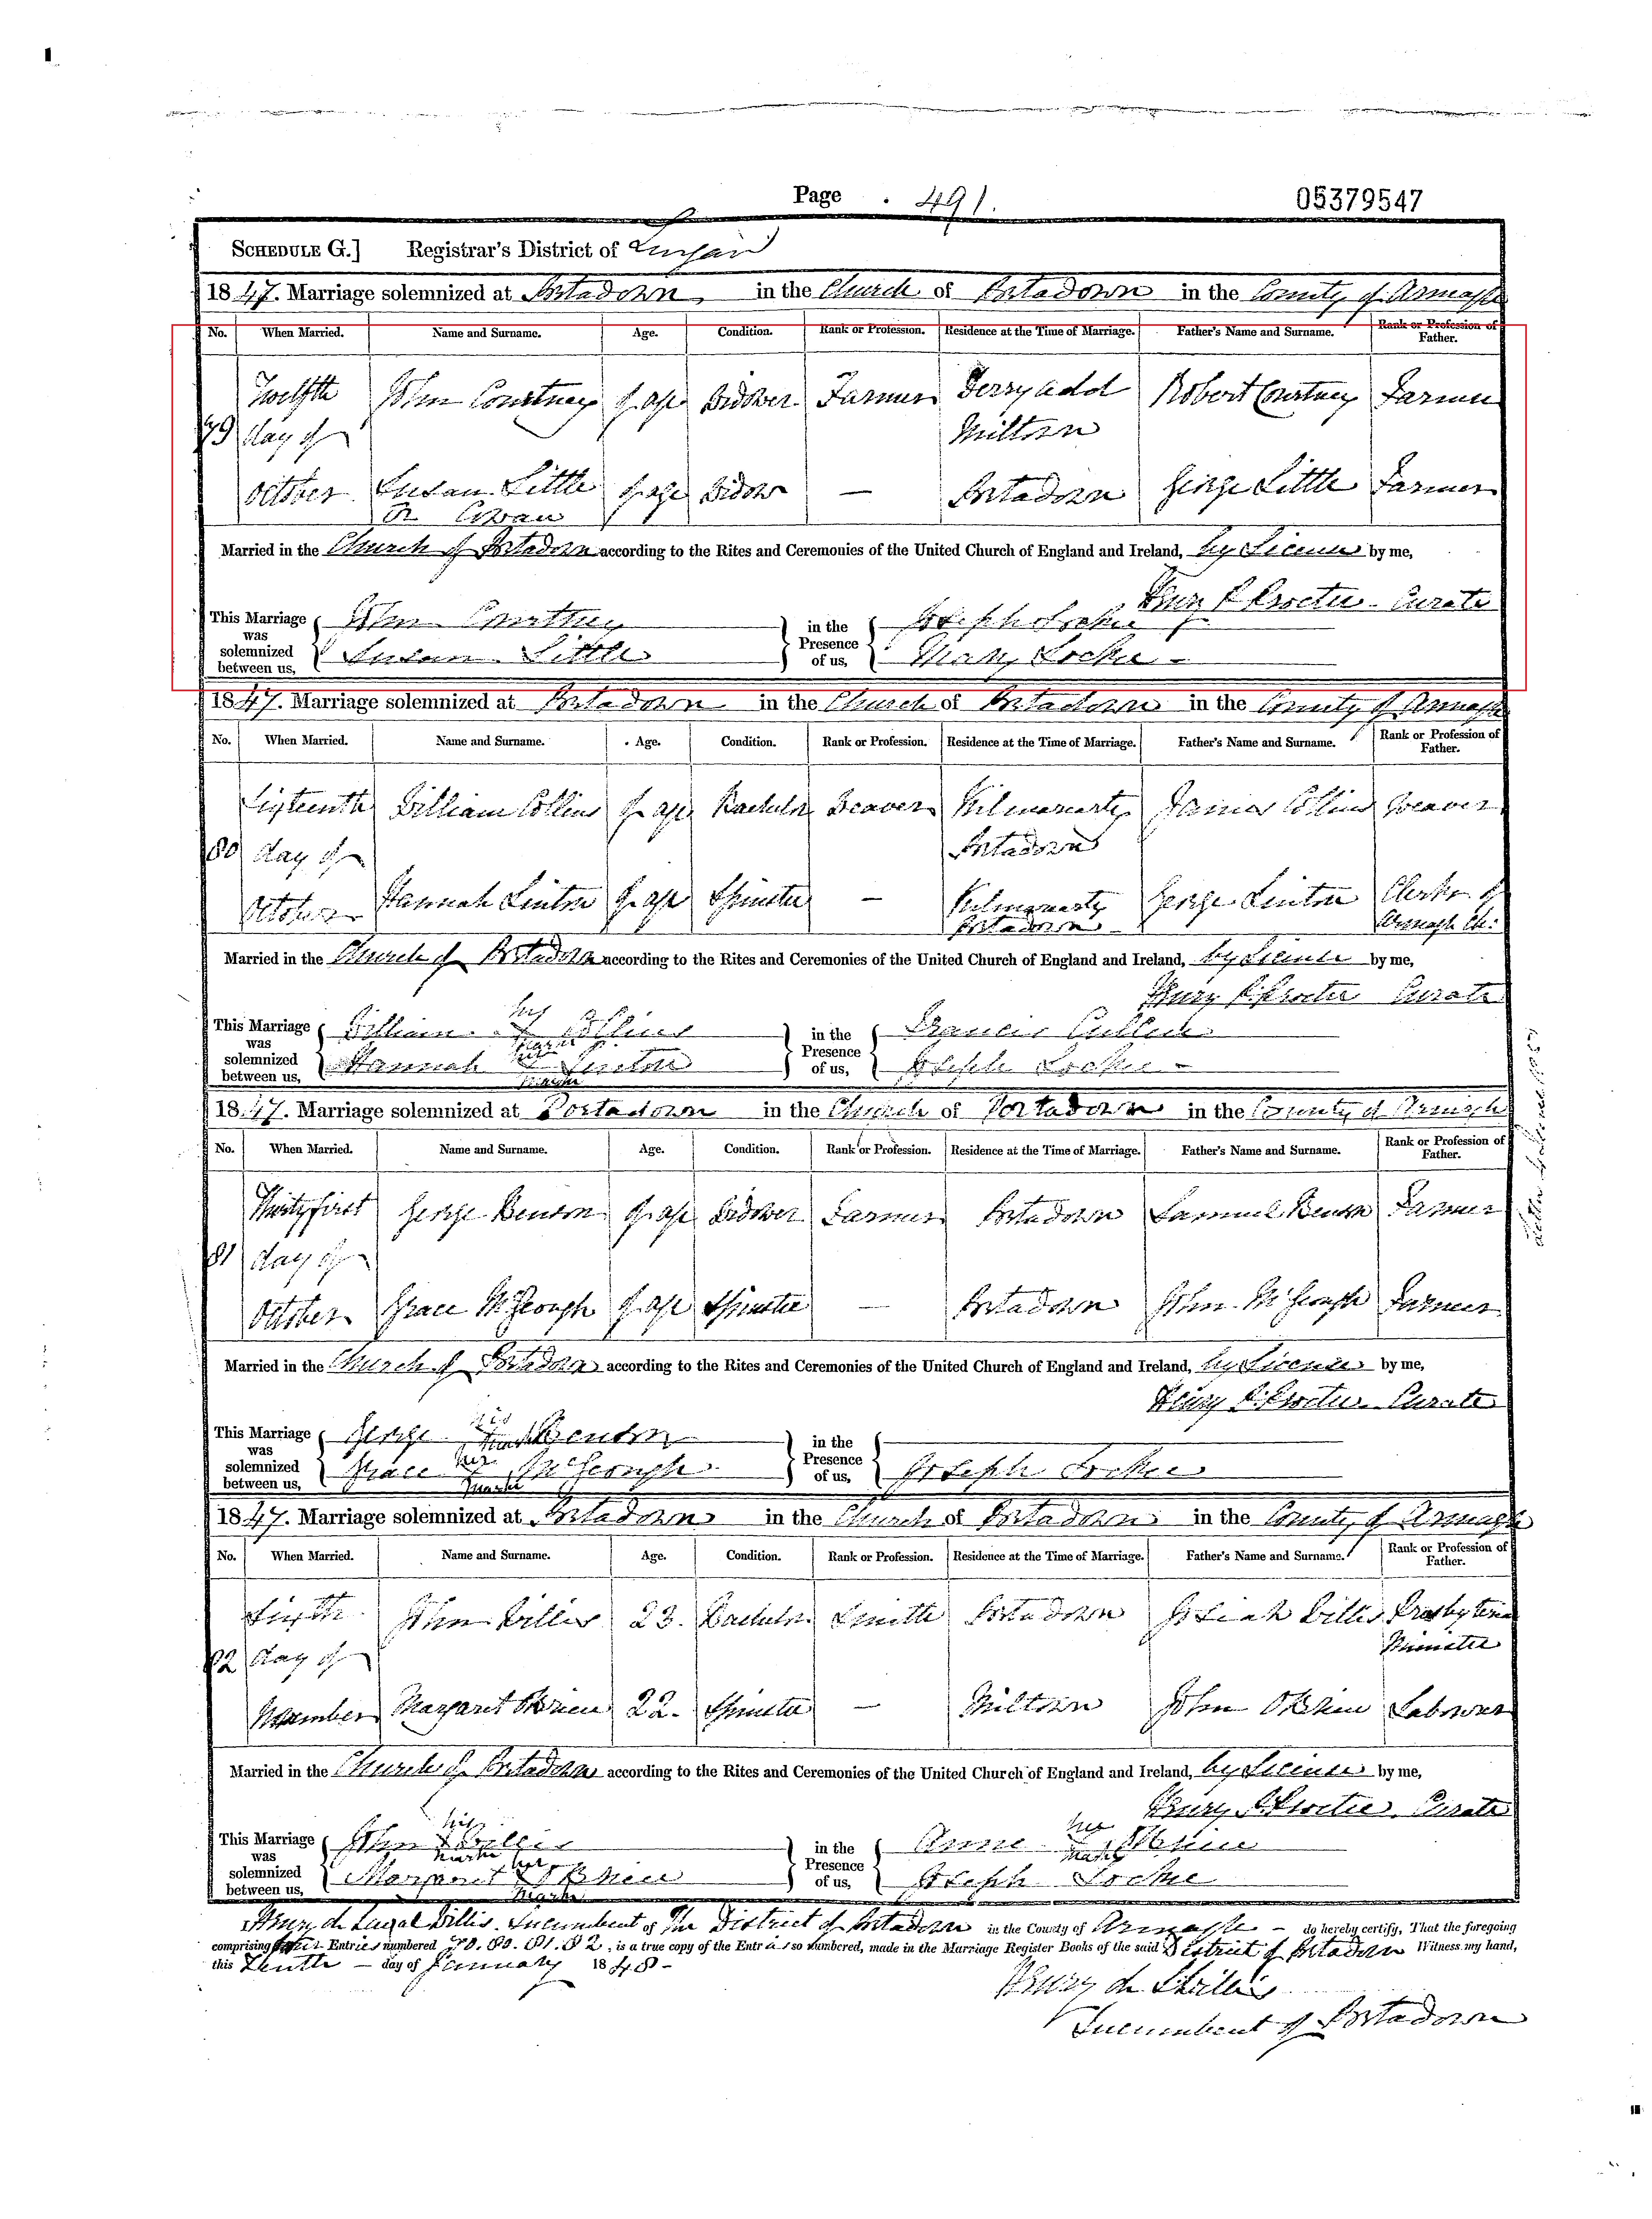 Page 491.
05379547
SCHEDULE G.] Registrar's District of Lurgan
1847. Marriage solemnized at Portadown in the Church of Portadown in the County of Armagh
No. When Married. Name and Surname. Age. Condition. Rank or Profession. Residence at the Time of Marriage. Father's Name and Surname. Rank or Profession of Father.
Twelfth John Courtney of age Widower Farmer Derryadd Robert Courtney Farmer
79 day of Miltown
October Susan Little of age Widow — Portadown George Little Farmer
Married in the Church of Portadown according to the Rites and Ceremonies of the United Church of England and Ireland, by License by me,
Curate
This Marriage was solemnized between us, John Courtney Susan Little in the Presence of us, Joseph Locke Locke
1847. Marriage solemnized at Portadown in the Church of Portadown in the County of Armagh
No. When Married. Name and Surname. Age. Condition. Rank or Profession. Residence at the Time of Marriage. Father's Name and Surname. Rank or Profession of Father.
Sixteenth William Collins of age Bachelor Weaver Kilmoriarty James Collins Weaver
80 day of Portadown
October Hannah Linton of age Spinster — Kilmoriarty George Linton Clerk of
Portadown Armagh Ch:
Married in the Church of Portadown according to the Rites and Ceremonies of the United Church of England and Ireland, by License by me,
Curate
This Marriage was solemnized between us, William his mark Collins Hannah her mark Linton in the Presence of us, Francis Joseph Locke
1847. Marriage solemnized at Portadown in the Church of Portadown in the County of Armagh
No. When Married. Name and Surname. Age. Condition. Rank or Profession. Residence at the Time of Marriage. Father's Name and Surname. Rank or Profession of Father.
Thirtyfirst George Benson of age Widower Farmer Portadown Samuel Benson Farmer
81 day of
October Grace McGeough of age Spinster — Portadown John McGeough Farmer
Married in the Church of Portadown according to the Rites and Ceremonies of the United Church of England and Ireland, by License by me,
Curate
This Marriage was solemnized between us, George his mark Benson Grace her mark McGeough in the Presence of us, Joseph Locke
1847. Marriage solemnized at Portadown in the Church of Portadown in the County of Armagh
No. When Married. Name and Surname. Age. Condition. Rank or Profession. Residence at the Time of Marriage. Father's Name and Surname. Rank or Profession of Father.
John Willis 23. Bachelor Smith Portadown Josiah Willis Presbyterian
82 day of Minister
November Margaret 22. Spinster — Miltown John Labourer
Married in the Church of Portadown according to the Rites and Ceremonies of the United Church of England and Ireland, by License by me,
Curate
This Marriage was solemnized between us, John his mark Willis Margaret her mark in the Presence of us, Anne her mark Joseph Locke
Incumbent of the District of Portadown in the County of Armagh — do hereby certify, That the foregoing
comprising four Entries numbered 79. 80. 81. 82, is a true copy of the Entries so numbered, made in the Marriage Register Books of the said District of Portadown Witness my hand,
this Tenth — day of January 1848 –
Incumbent of Portadown